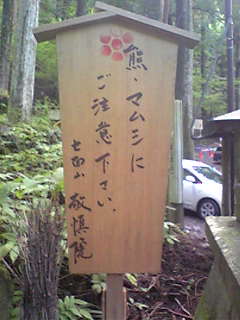 熊・マムシに
ご注意下さい、
七面山 敬慎院